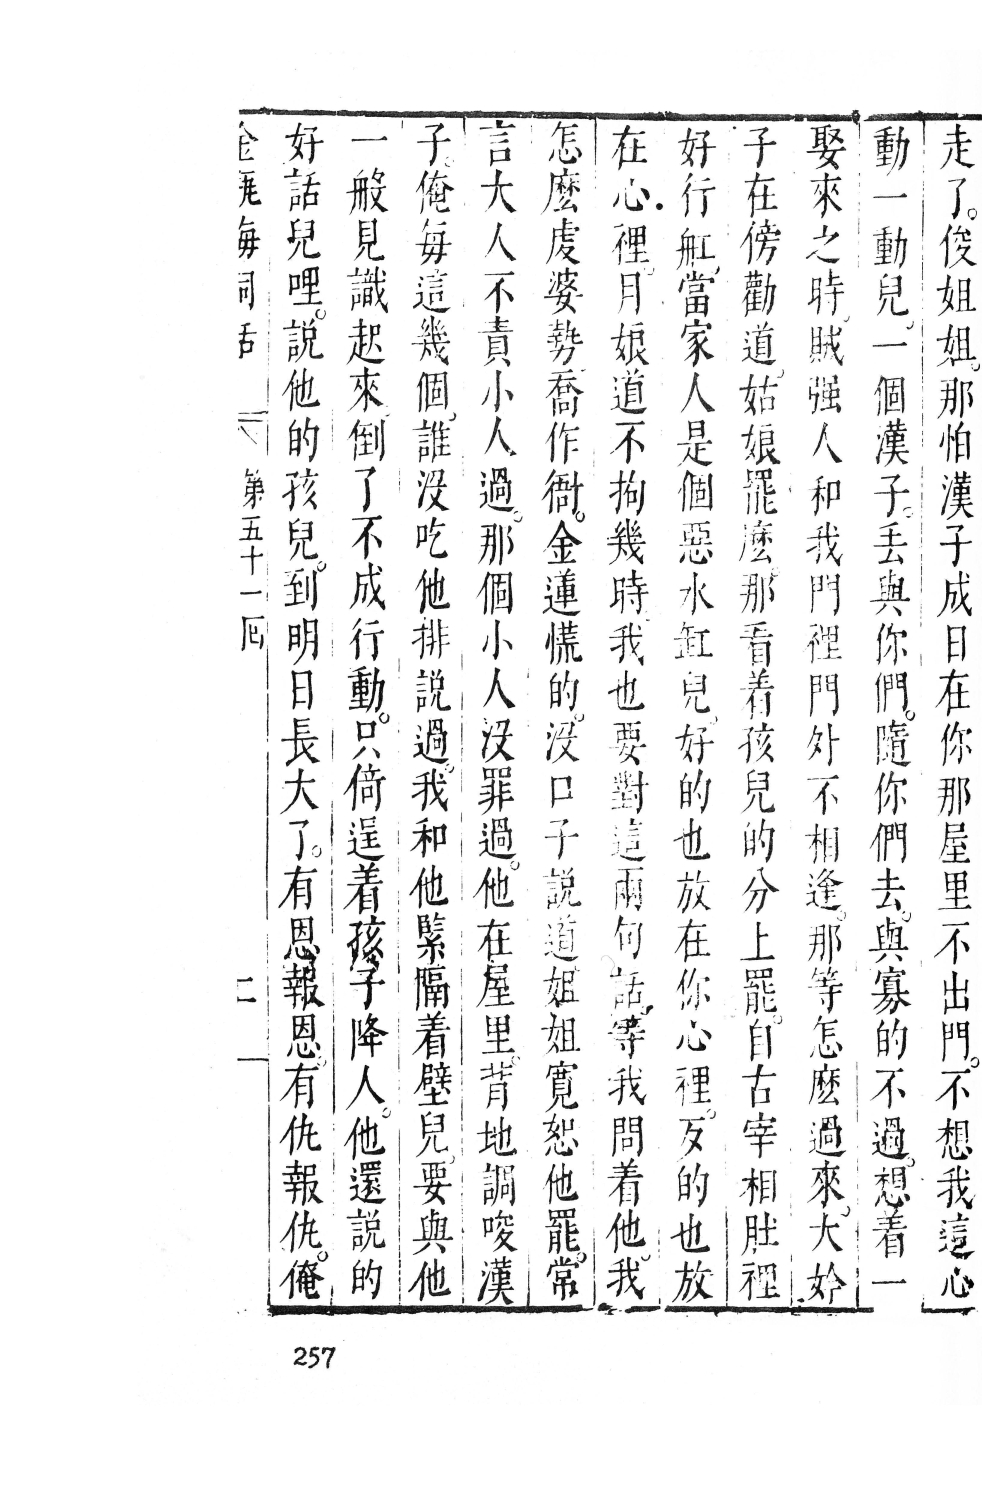 走了。俊姐姐。那怕漢子成日在你那屋里不出門。不想我這心
動一動兒。一個漢子。丢與你們。隨你們去。與寡的不過。想着一
娶來之時。賊强人和我門裡門外不相逢。那等怎麽過來。大妗
子在傍勸道。姑娘罷麽。那看着孩兒的分上罷。自古宰相肚裡
好行舡。當家人是個惡水缸兒。好的也放在你心裡。歹的也放
在心裡。月娘道不拘幾時。我也要對這兩句話。等我問着他。我
怎麽虔婆勢。喬作衙。金蓮慌的。沒口子説道。姐姐寛恕他罷。常
言大人不責小人過。那個小人沒罪過。他在屋里。背地調唆漢
子。俺每這幾個。誰沒吃他排説過。我和他緊隔着壁兒。要與他
一般見識起來。倒了不成行動。只倚逞着孩子降人。他還説的
好話兒哩。説他的孩兒。到明日長大了。有恩報恩。有仇報仇。俺
金瓶梅詞話 第五十一回 二
257